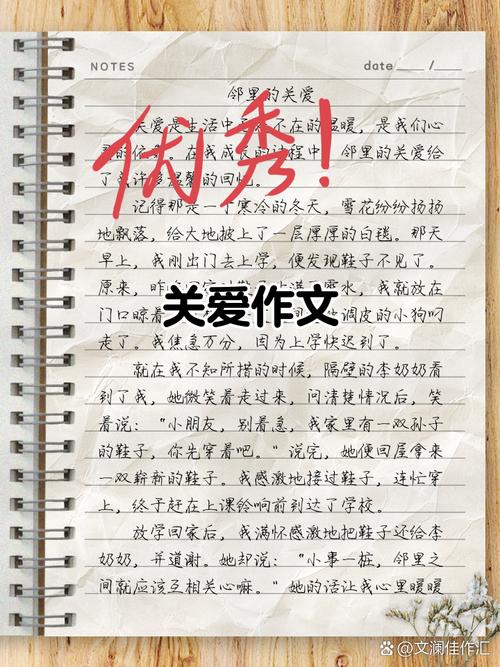 NOTES
date
邻里的关爱
关爱是生活中 不在的温暖，是我们心
在我成长的过程中，邻里的关爱给
了 许多温馨的回忆。
优秀！
记得那是一个寒冷的冬天，雪花纷纷扬扬
地飘落，给大地披上了一层厚厚的白毯。那天
早上，我刚出门去上学，便发现鞋子不见了。
原来，昨 水，我就放在
门口晾着 调皮的小狗叼
关爱作文
走了。我焦急万分，因为上学快迟到了。
就在我不知所措的时候，隔壁的李奶奶看
到了我，她微笑着走过来，问清楚情况后，笑
着说：“小朋友，别着急，我家里有一双孙子
的鞋子，你先穿着吧。”说完，她便回屋拿来
一双崭新的鞋子。我感激地接过鞋子，连忙穿
上，终于赶在上课铃响前到达了学校。
放学回家后，我满怀感激地把鞋子还给李
奶奶，并道谢。她却说：“小事一桩，邻里之
间就应该互相关心嘛。”她的话让我心里暖暖
文澜佳作汇